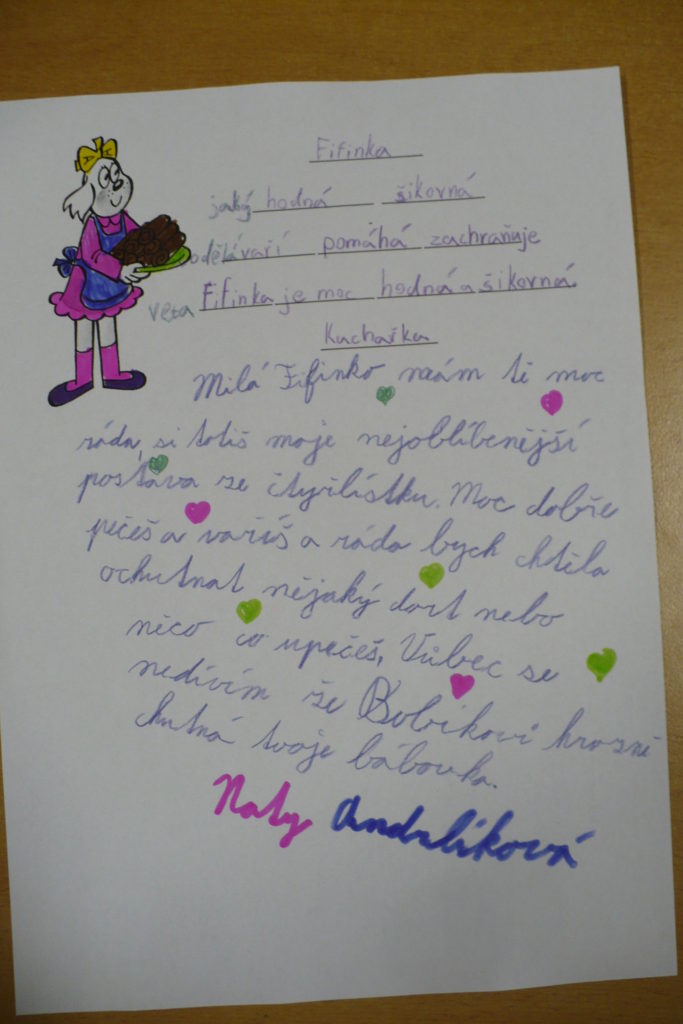 Fifinka
jaký hodná šikovná
odělá vaří pomáhá zachraňuje
věta Fifinka je moc hodná a šikovná.
Kuchařka
Milá Fifinko mám tě moc
ráda, si totiš moje nejoblíbenější
postava ze čtyřlístku. Moc dobře
pečeš a vaříš a ráda bych chtěla
ochutnat nějaký dort nebo
něco co upečeš. Vůbec se
nedivím že Bobíkovi hrozně
chutná tvoje bábovka.
Naty Andrlíková